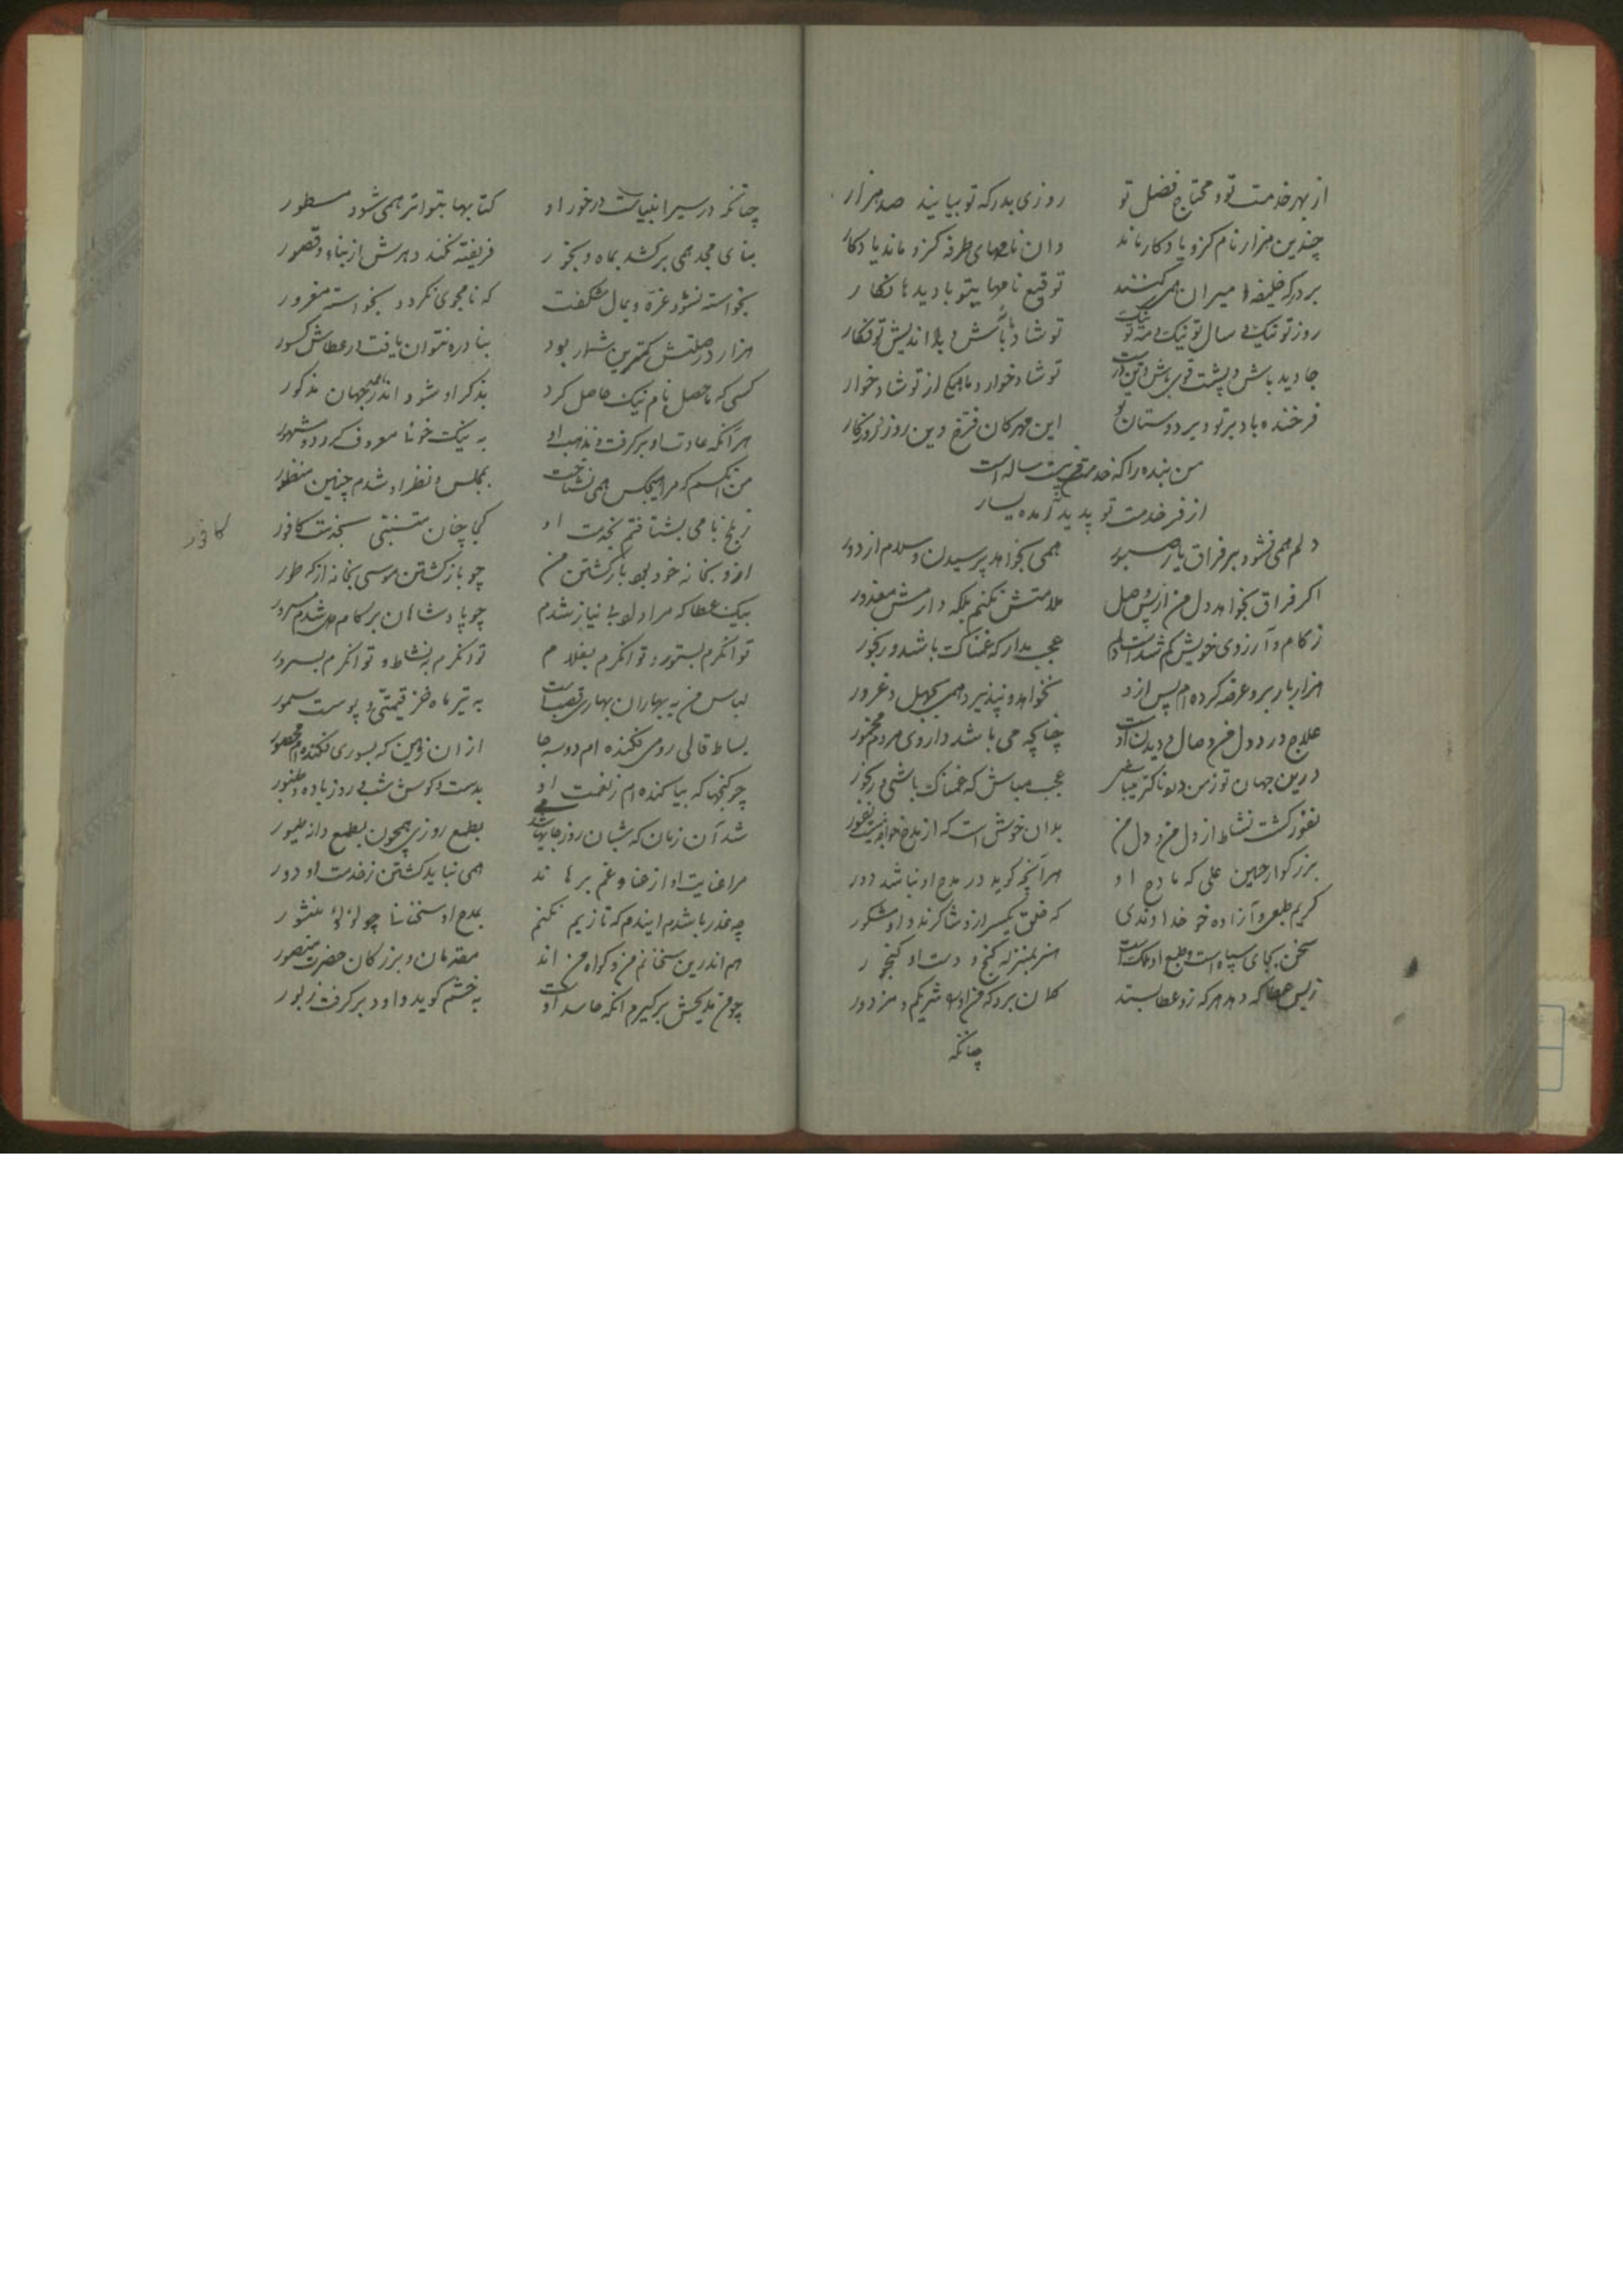 از بهر خدمت تو و محتاج فضل تو روزی بدرکه تو بیایند صد هزار
چندین هزار نام کزو یادکار ماند وان نامهای طرفه کزو ماند یادکار
بر درکه خلیفه امیران همی کنند توقیع نامها بتو با دیدها نکار
روز تو نیک و سال تو نیک و مه تو نیک تو شاد باش و بداندیش تو فکار
جاوید باش و پشت قوی باش و تن درست تو شادخوار و ما همکی از تو شادخوار
فرخنده باد بر تو و بر دوستان تو این مهرکان فرخ و این روز روزکار
من بنده را که خدمت تو بیست ساله است
از فر خدمت تو پدید آمده یسار
دلم همی نشود بر فراق یار صبور همی بخواهد پرسیدن و سلام از دور
اکر فراق بخواهد دل من از پس وصل ملامتش نکنم بلکه دارمش معذور
ز کام و آرزوی خویش کم شداست دلم عجب مدار که غمناک باشد و رنجور
هزار بار برو عرضه کرده ام پس ازو نخواهد و نپذیرد همی بجهل و غرور
علاج درد دل من وصال و دیدن اوست چنانچه می باشد داروی مردم مخمور
درین جهان تو ز من عجب مباش که غمناک باشی و رنجور
نفور کشت نشاط از دل من و دل من بدان خوش است که از مدح خواجه نیست نفور
بزرکوار حسین علی که مادح او هر آنچه کوید در مدح او نباشد دور
کریم طبعی و آزاده خو خداوندی که خلق یکسر ازو شاکرند و او مشکور
سخن بجای سپاه است و طبع او ملک است هنر بمنزله کنج و دست او کنجور
ز بس عطا که دهد هر که زو عطا بستد کمان برد که من او را شریکم و مزدور
چنانکه
چنانکه در سیر انبیاست در خور او کتابها بتواتر همی شود مسطور
بنای مجد همی برکشد بماه و بخور فریفته نکند دهرش از بناء و قصور
بخواسته نشود غره و بمال شکفت که نامجوی نکردد بخواسته مغرور
هزار در صلتش کمترین شمار بود بنادره نتوان یافت در عطاش کسور
کسی که حاصل نام نیک حاصل کرد بذکر او شود اندر جهان مذکور
هر آنکه عادت او برکرفت و مذهب او به نیک خوئی معروف کردد و مشهور
من آنکسم که مرا هیچکس همی نشناخت بمجلس و نظر او شدم چنین منظور
ز بلخ نامی بشتافتم بخدمت او کجا چنان متنبی بخدمت کافور
ازو بخانه خود بود بازکشتن من چو بازکشتن موسی بخانه از که طور
بیک عطا که مرا داد بی نیاز شدم چو پادشاهان بر کام دل شدم مسرور
توانکرم بستور و توانکرم بغلام توانکرم به نشاط و توانکرم بسرور
لباس من به بهاران بهاری قصب است به تیرماه خز قیمتی و پوست سمور
بساط قالی رومی فکنده ام دو سه جا از آن زمین که بسوری فکنده ام محصور
چو کنجها که بیاکنده ام ز نعمت او بدست و کوسش شب و روز باده و طنبور
شد آن زمان که شبان روز جایها شدمی بطمع روزی همچون بطمع دانه طیور
مرا عنایت او از عنا و غم برهاند همی نباید کشتن ز خدمت او دور
چه عذر باشدم ایندم که تا زیم نکنم بمدح او سخنانا چو لؤلؤ منثور
هم اندرین سخنانم من و کواه من اند مقدمان و بزرکان حضرت منصور
چو من مدیحش برکیرم آنکه حاسد اوست به خشم کوید داود برکرفت زبور
کافور